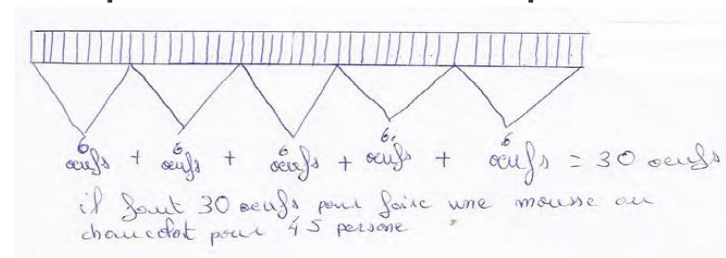 6 6 6 6 6
oeufs + oeufs + oeufs + oeufs + oeufs = 30 oeufs
il faut 30 oeufs pour faire une mousse au
chaucolat pour 45 persone